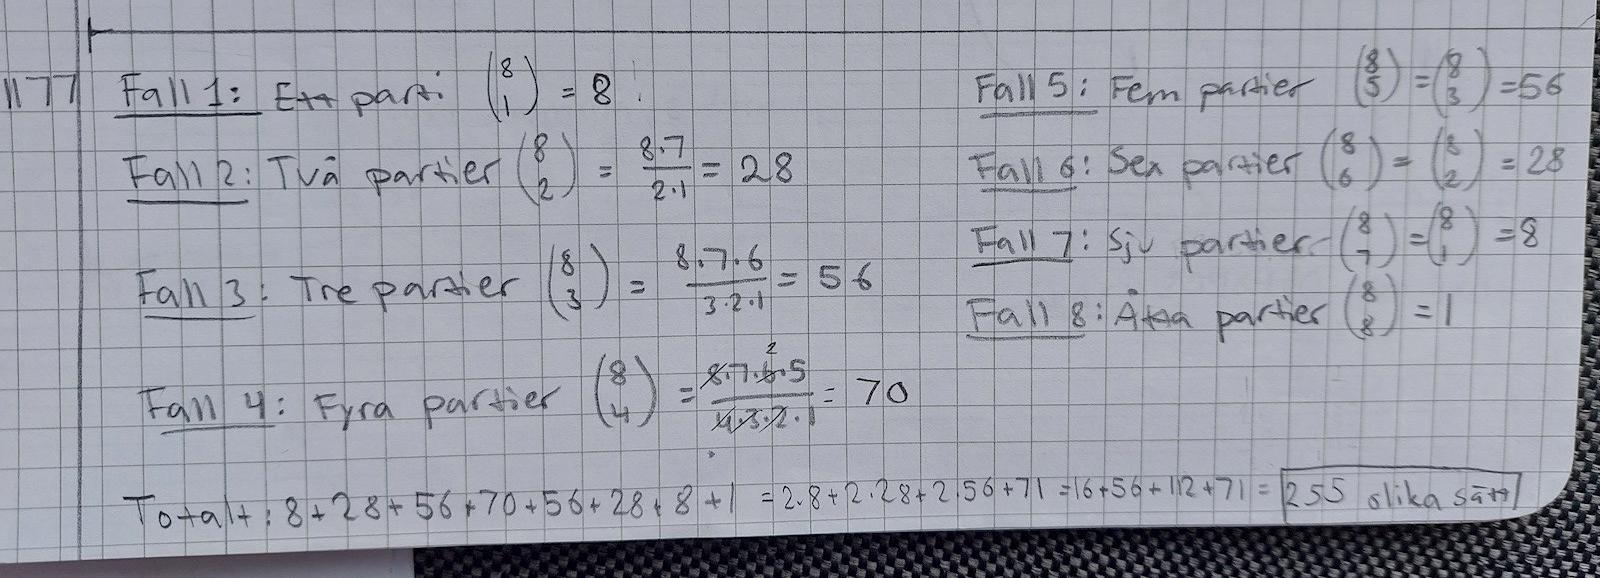 1177
Fall 1: Ett parti (8 1) = 8
Fall 2: Två partier (8 2) = 8·7/2·1 = 28
Fall 3: Tre partier (8 3) = 8·7·6/3·2·1 = 56
Fall 4: Fyra partier (8 4) = 8·7·6·5/4·3·2·1 = 70
Fall 5: Fem partier (8 5) = (8 3) = 56
Fall 6: Sex partier (8 6) = (8 2) = 28
Fall 7: Sju partier (8 7) = (8 1) = 8
Fall 8: Åtta partier (8 8) = 1
Totalt: 8+28+56+70+56+28+8+1 = 2·8+2·28+2·56+71 = 16+56+112+71 = 255 olika sätt